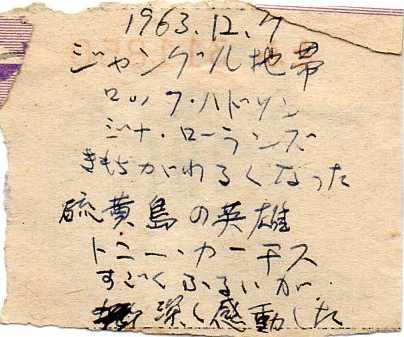 1963.12.7
ジャングル地帯
ロック・ハドソン
ジナ・ローランズ
きもちがわるくなった
硫黄島の英雄
トニー・カーチス
すごくふるいが
深く感動した